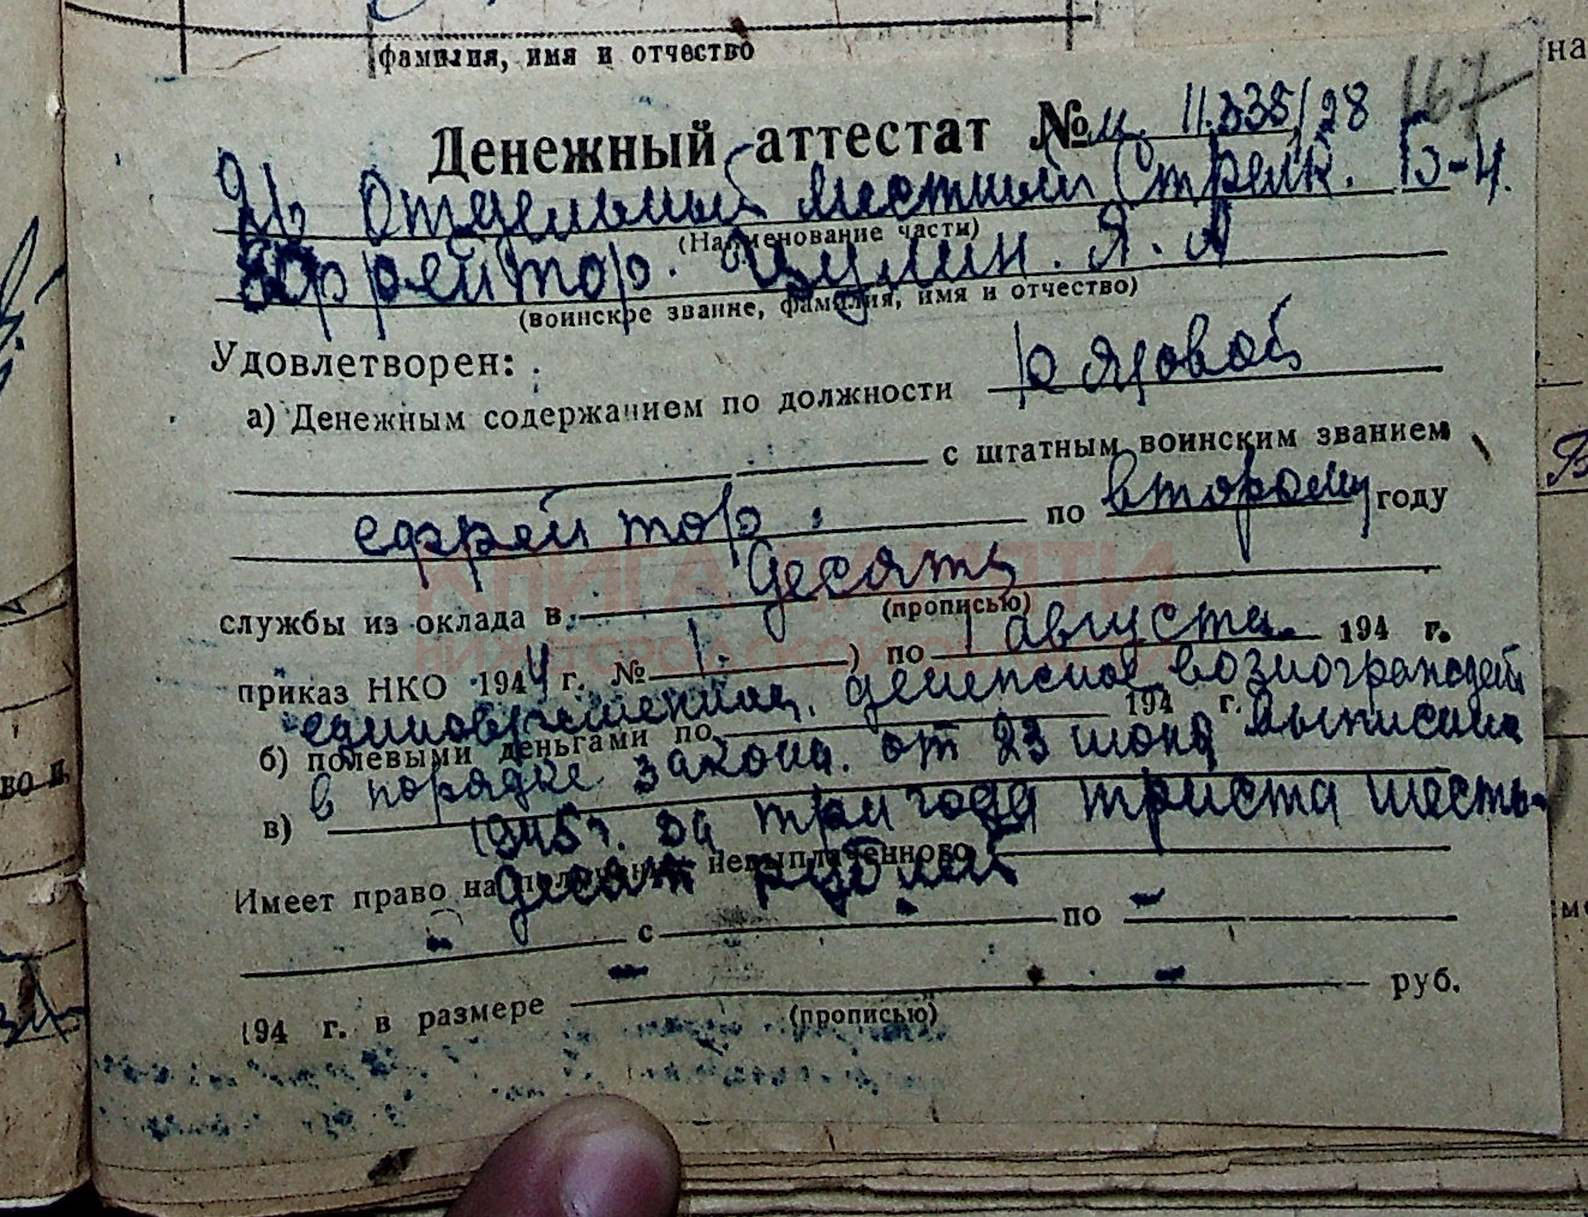 фамилия, имя и отчество
на
167
Денежный аттестат № 11.335/28
Отдельный местный Стрелк. Б-н.
(Наименование части)
Ефрейтор. Я. А
(воинское звание, фамилия, имя и отчество)
Удовлетворен:
а) Денежным содержанием по должности рядовой
с штатным воинским званием
ефрейтор. по второму году
службы из оклада в десять
(прописью)
приказ НКО 1944 г. № 1. ) по 1 августа. 194 г.
единовременная. денежное вознагражден
б) полевыми деньгами по 194 г. выписана
в порядке закона. от 23 июня
в)
1945 г. за три года триста шесть-
Имеет право на получение невыплаченного
десят рублей
с по
194 г. в размере руб.
(прописью)
КНИГА ПАМЯТИ
НИЖЕГОРОДСКОЙ ОБЛАСТИ